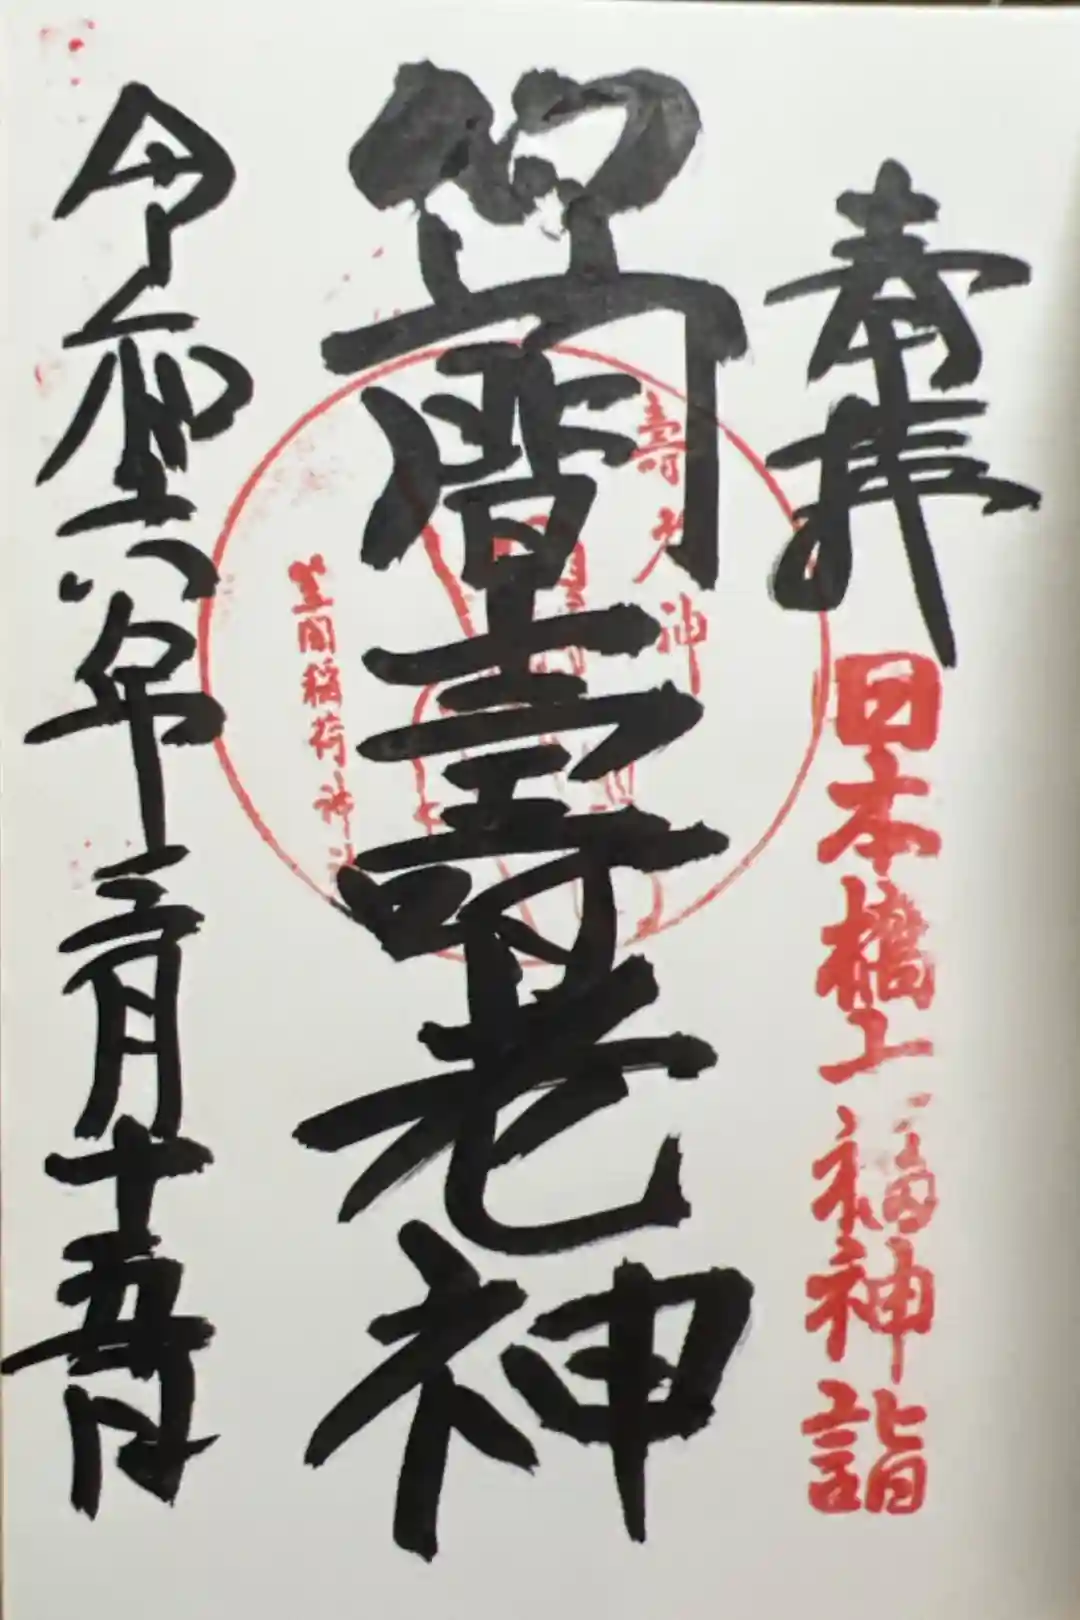 奉拝
日本橋七福神詣
笠間壽老神
壽老神
笠間稲荷神社
令和六年三月十五日